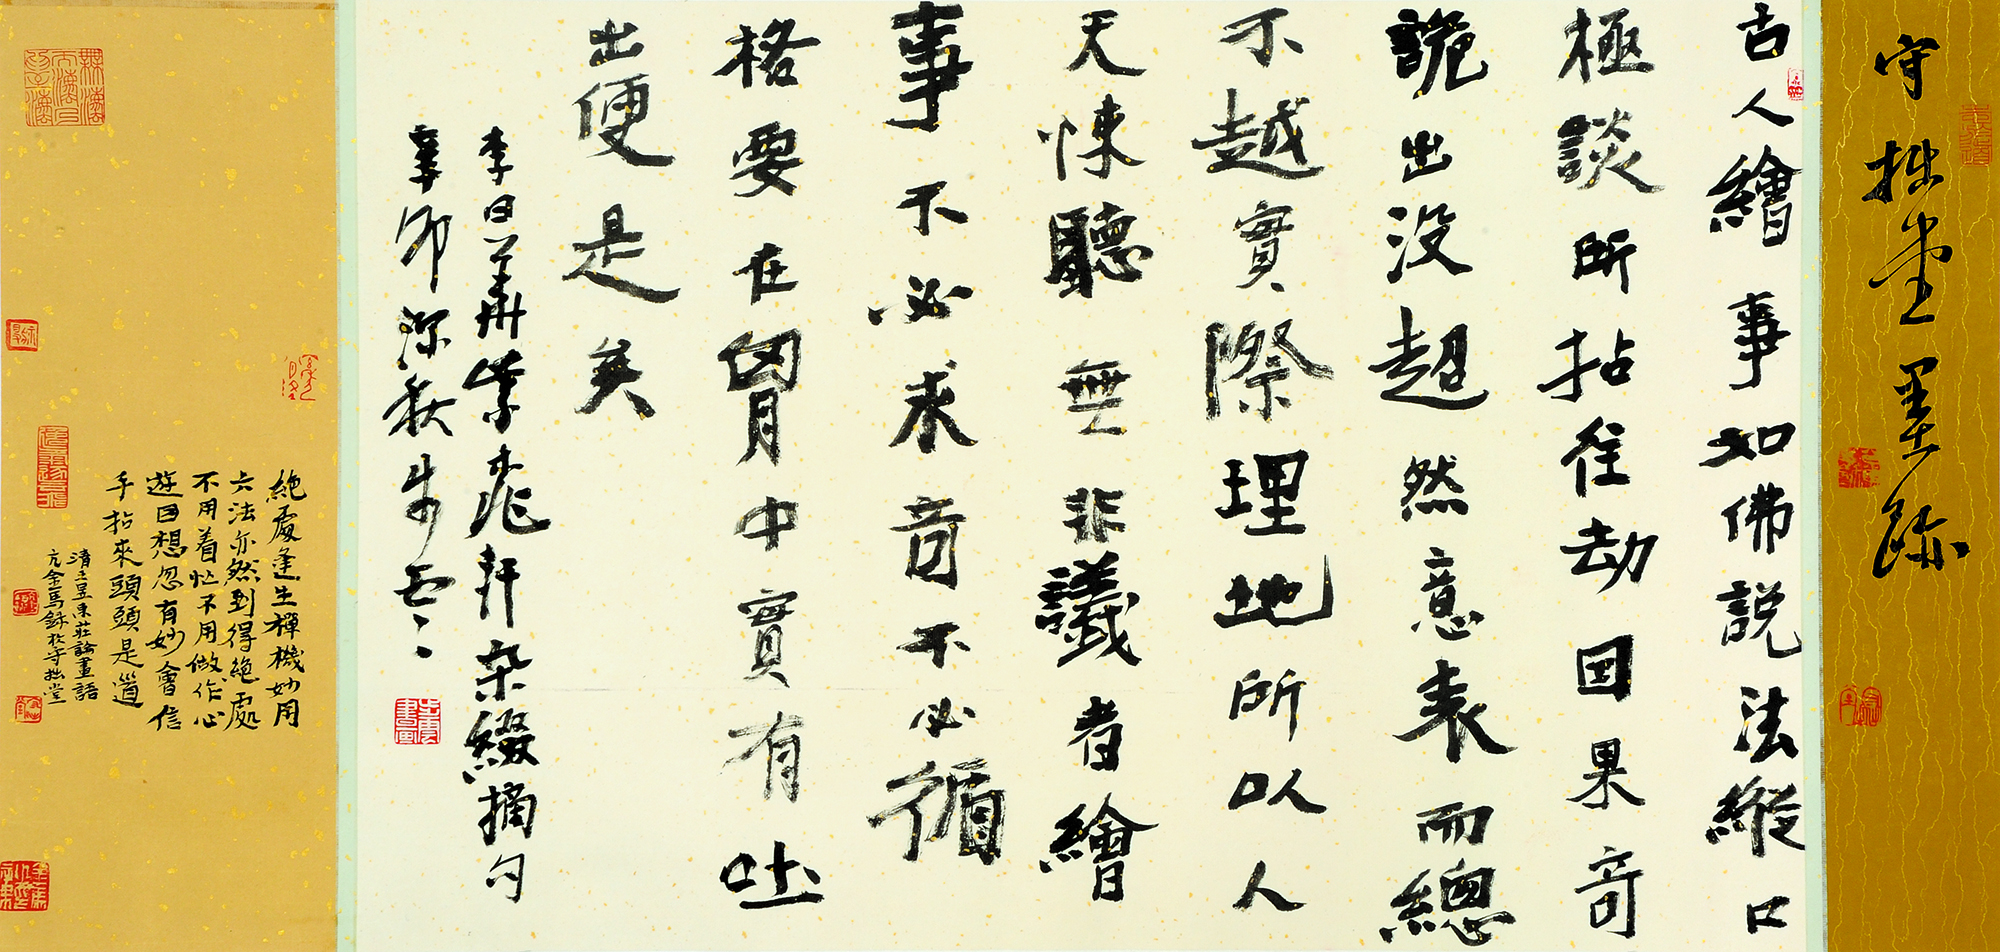 守拙堂墨跡
古人繪事如佛說法縱口
極談所拈往劫因果奇
詭出没超然意表而總
不越實際理地所以人
天悚聽無非議者繪
事不必求奇不必循
格要在胷中實有吐
出便是矣
李日華紫桃軒杂綴摘句
辛卯深秋
絶處逢生禪機妙用
六法亦然到得絶處
不用着忙不用做作心
遊目想忽有妙會信
手拈來頭頭是道
清王昱東莊論畫語
於守拙堂